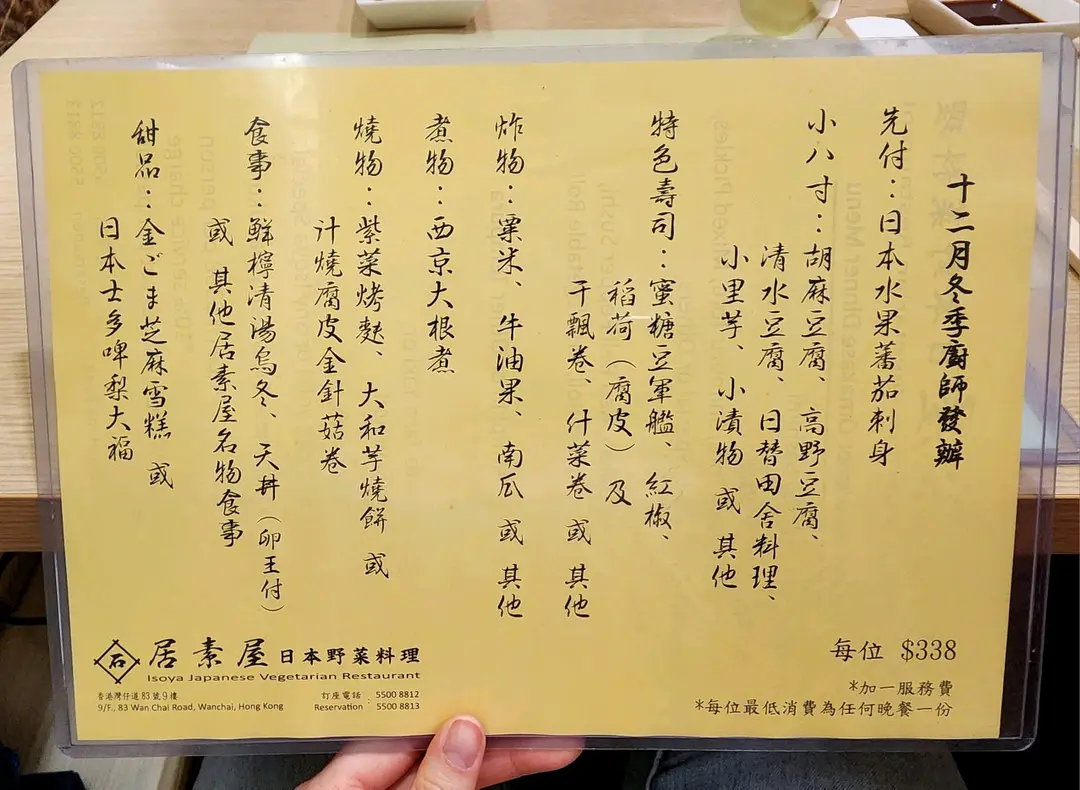 十二月冬季廚師發辦
先付：日本水果蕃茄刺身
小八寸：胡麻豆腐、高野豆腐、
清水豆腐、日替田舍料理、
小里芋、小漬物 或 其他
特色壽司：蜜糖豆軍艦、紅椒、
稻荷（腐皮）及
干瓢卷、什菜卷 或 其他
炸物：粟米、牛油果、南瓜 或 其他
煮物：西京大根煮
燒物：紫菜烤麩、大和芋燒餅 或
汁燒腐皮金針菇卷
食事：鮮檸清湯烏冬、天丼（卵王付）
或 其他居素屋名物食事
甜品：金ごま芝麻雪糕 或
日本士多啤梨大福
每位 $338
*加一服務費
*每位最低消費為任何晚餐一份
石 居素屋 日本野菜料理
Isoya Japanese Vegetarian Restaurant
香港灣仔道83號9樓
9/F., 83 Wan Chai Road, Wanchai, Hong Kong
訂座電話 : 5500 8812
Reservation 5500 8813